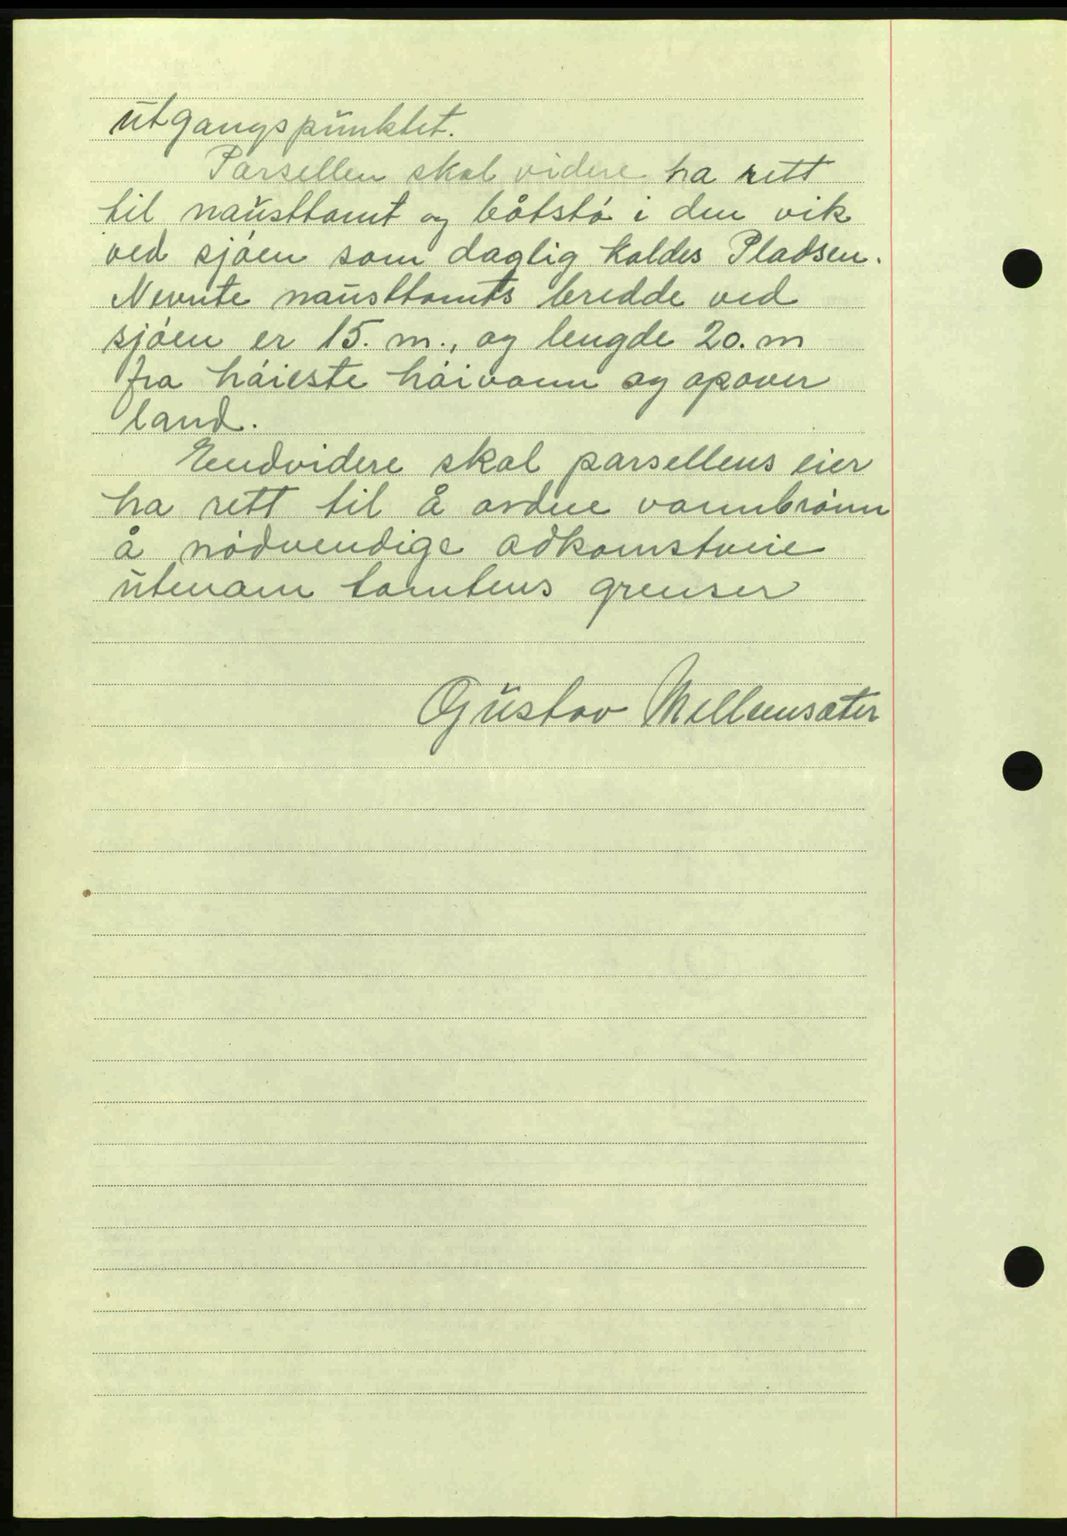 utgangspunktet.
Parsellen skal videre ha rett
til nausttomt og båtstø i den vik
ved sjøen som daglig kaldes Pladsen.
Nevnte nausttomts bredde ved
sjøen er 15. m., og lengde 20. m
fra høieste høivann og opover
land.
Endvidere skal parsellens eier
ha rett til å ordne vannbrønn
å nødvendige adkomstveie
utenom tomtens grenser
Gustav Mellemsæter